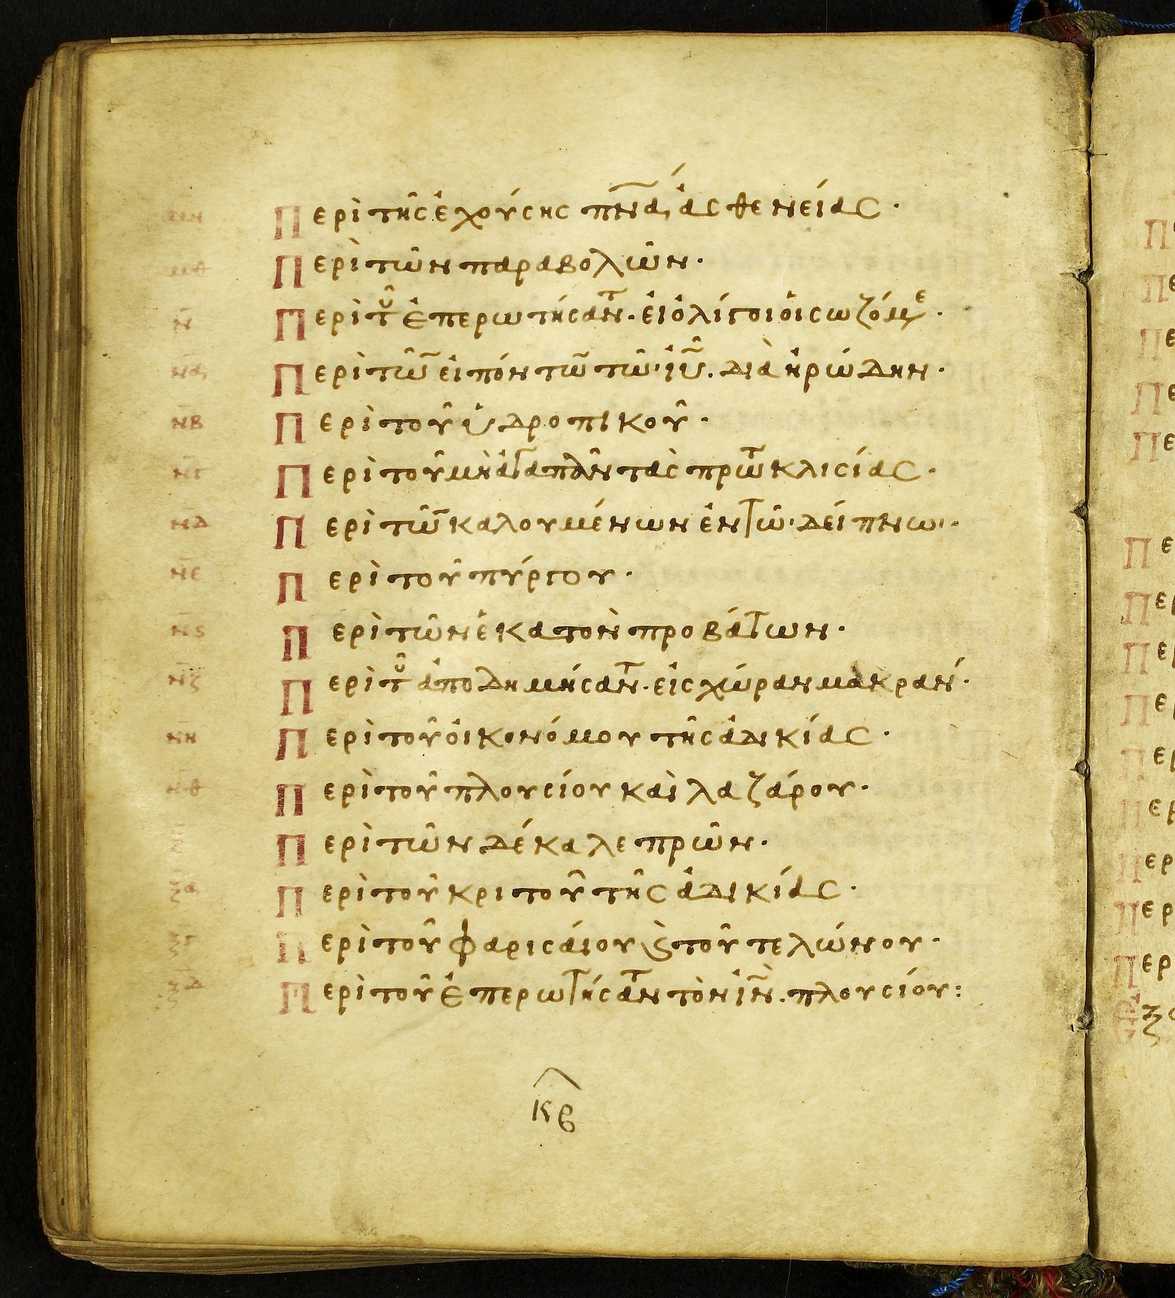 μη Περὶ τῆς ἐχούσης πν̅α ἀσθενείας·
μθ Περὶ τῶν παραβολῶν·
ν Περὶ τοῦ ἐπερωτήσαντ· εἰ ὀλίγοι οἱ σωζόμε·
να Περὶ τῶν εἰπόντων τῶ ἰυ̅. διὰ ἡρώδην·
νβ Περὶ τοῦ ὑδροπικοῦ·
νγ Περὶ τοῦ μὴ ἀγαπᾶν τὰς πρωτοκλισίας·
νδ Περὶ τῶν καλουμένων ἐν τῶ δείπνω·
νε Περὶ τοῦ πύργου·
νς Περὶ τῶν ἑκατὸν προβάτων·
νζ Περὶ τοῦ ἀποδημήσαντ· εἰς χώραν μακράν·
νη Περὶ τοῦ οἰκονόμου τῆς ἀδικίας·
νθ Περὶ τοῦ πλουσίου καὶ λαζάρου·
Περὶ τῶν δέκα λεπρῶν·
ξα Περὶ τοῦ κριτοῦ τῆς ἀδικίας·
Περὶ τοῦ φαρισαίου ϗ τοῦ τελώνου·
Περὶ τοῦ ἐπερωτήσαντ τὸν ἰν̅. πλουσίου:
κβ
Π
Πε
Πε
Πε
Πε
Πε
Περ
Πε
Περ
Περ
Περ
Περ
Περ
Περ